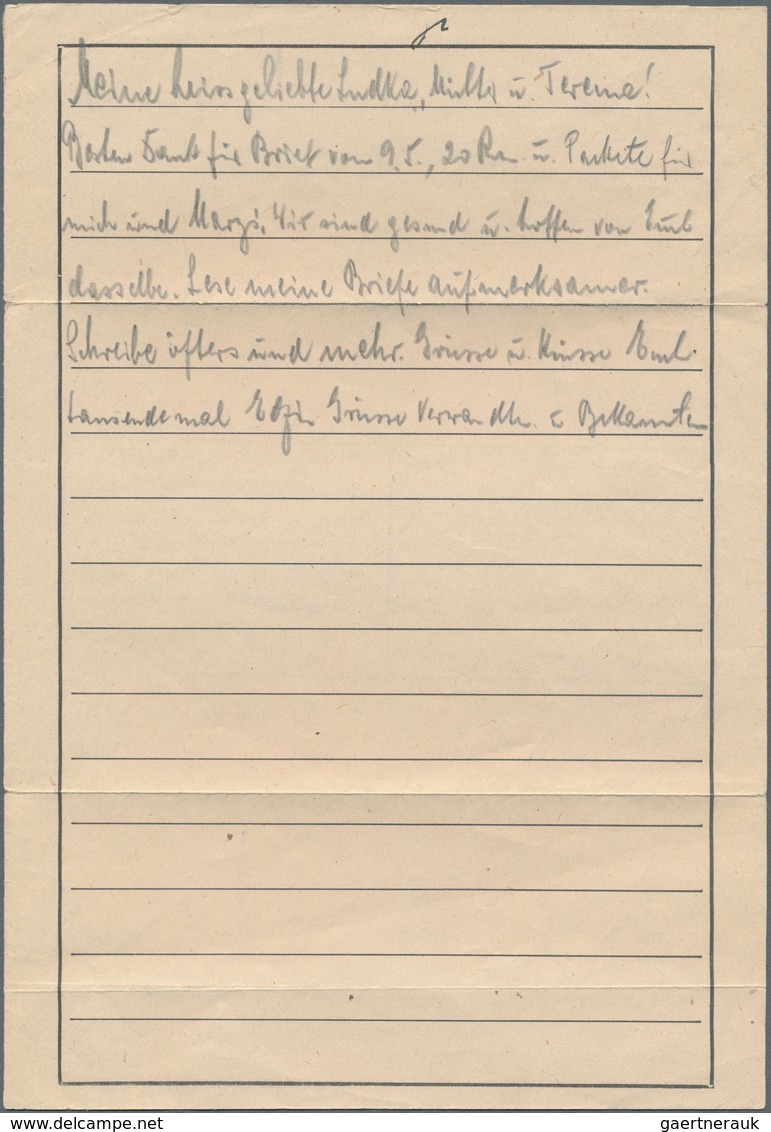 Meine heissgeliebte Ludka, Mutter u. Tereina!
Besten Dank für Brief vom 9.5., 20 Rm. u. Pakete für
mich und Wir sind gesund u. hoffen von Euch
dasselbe. Lese meine Briefe aufmerksamer.
Schreibe öfters und mehr. Grüsse u. Küsse Euch
tausendemal Grüsse Verwandte u Bekannten
www.delcampe.net
gaertnerauk